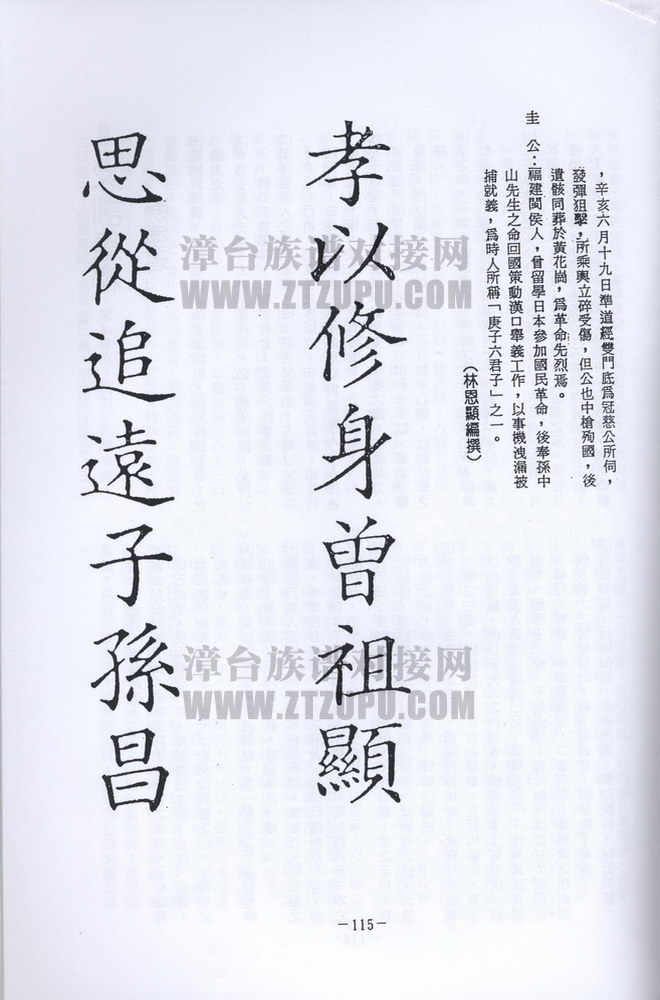 ，辛亥六月十九日準道經雙門底爲冠慈公所伺，
發彈狙擊，所乘輿立碎受傷，但公也中槍殉國，後
遺骸同葬於黃花崗，爲革命先烈焉。
圭　公：福建閩侯人，曾留學日本參加國民革命，後奉孫中
山先生之命回國策動漢口舉義工作，以事機洩漏被
捕就義，爲時人所稱「庚子六君子」之一。
（林恩顯編撰）
孝以修身曾祖顯
思從追遠子孫昌
漳台族谱对接网
WWW.ZTZUPU.COM
漳台族谱对接网
WWW.ZTZUPU.COM
－115－